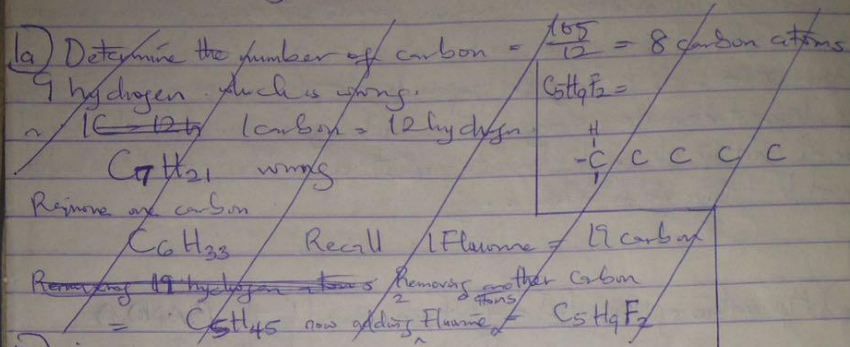 1a) Determine the number of carbon = 105/12 = 8 carbon atoms
9 hydrogen which is wrong.
C5H9F2 =
~ 1C = 12h 1 carbon = 12 hydrogen
H
-C C C C C
C7H21 wrong
Remove one carbon
C6H33 Recall 1 Flourine = 19 carbon
Removing 19 hydrogen atoms Removing another carbon
= C5H45 now adding 2 Flourine atoms = C5H9F2